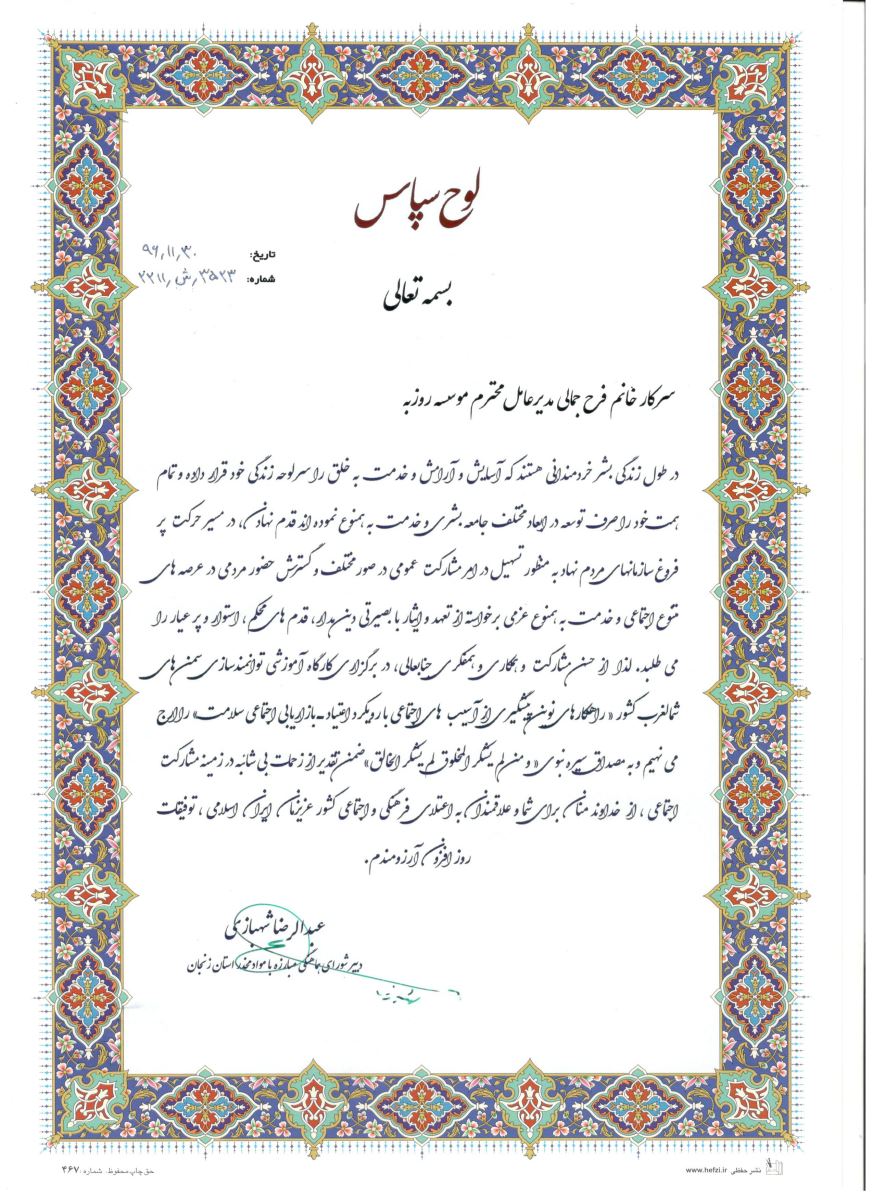 لوح سپاس
تاریخ: ۹۶,۱۱,۳۰
شماره: ۲۲۱۱,ش,۳۵۲۳
بسمه تعالی
سرکار خانم فرح جمالی مدیرعامل محترم موسسه روزبه
در طول زندگی بشر خردمندانی هستند که آسایش و آرامش و خدمت به خلق را سرلوحه زندگی خود قرار داده و تمام
همت خود را صرف توسعه در ابعاد مختلف جامعه بشری و خدمت به همنوع نموده اند قدم نهادن، در مسیر حرکت پر
فروغ سازمانهای مردم نهاد به منظور تسهیل در امر مشارکت عمومی در صور مختلف و گسترش حضور مردمی در عرصه های
متنوع اجتماعی و خدمت به همنوع عزمی برخواسته از تعهد و ایثار با بصیرتی دین مدار، قدم های محکم، استوار و پر عیار را
می طلبد. لذا از حسن مشارکت و همکاری و همفکری جنابعالی، در برگزاری کارگاه آموزشی توانمندسازی سمن های
شمالغرب کشور « راهکارهای نوین پیشگیری از آسیب های اجتماعی با رویکرد اعتیاد ـ بازاریابی اجتماعی سلامت» را ارج
می نهیم و به مصداق سیره نبوی « و من لم یشکر المخلوق لم یشکر الخالق» ضمن تقدیر از زحمات بی شائبه در زمینه مشارکت
اجتماعی ، از خداوند منان برای شما و علاقمندان به اعتلای فرهنگی و اجتماعی کشور عزیزمان ایران اسلامی ، توفیقات
روز افزون آرزومندم.
عبدالرضا شهبازی
دبیر شورای هماهنگی مبارزه با مواد مخدر استان زنجان
نشر حفظی www.hefzi.ir
حق چاپ محفوظ. شماره ۴۶۷